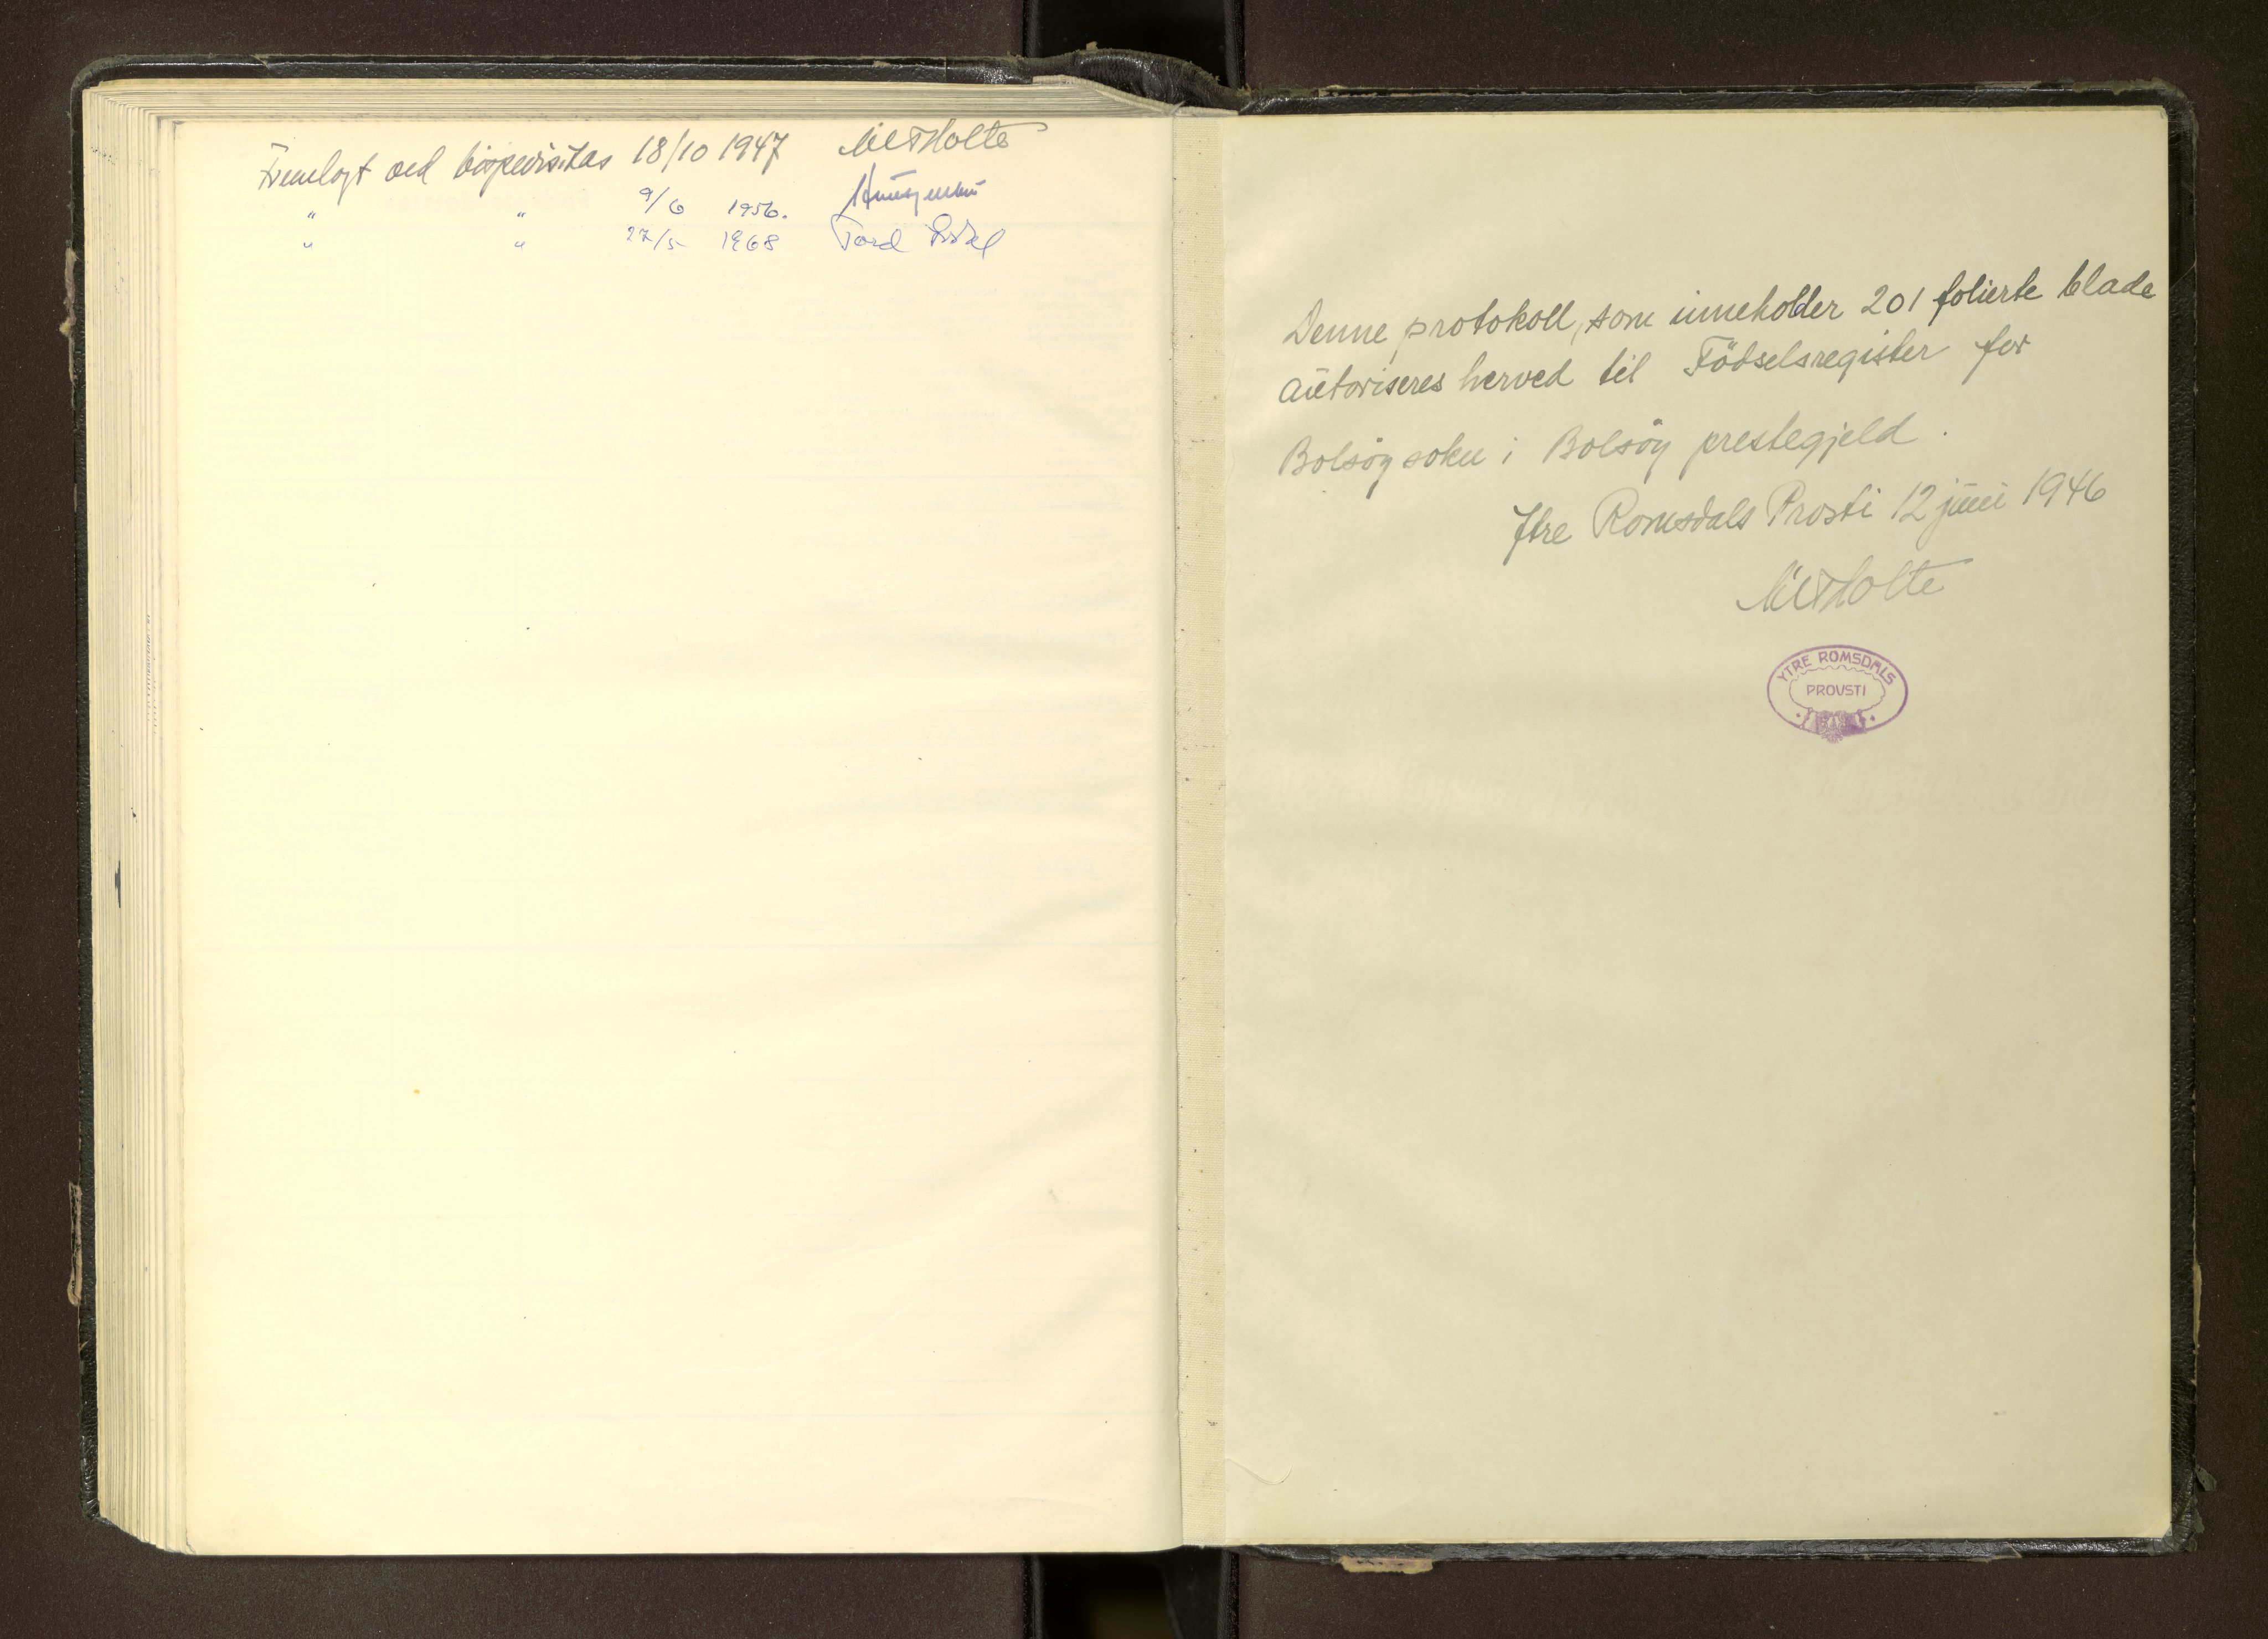 Fremlagt ved bispevisitas 18/10 1947 Holte
" " 9/6 1956.
" " 27/5 1968 Tord
Denne protokoll, som inneholder 201 folierte blade
autoriseres herved til Födselsregister for
Bolsöy sokn i Bolsöy prestegjeld.
Ytre Romsdals Prosti 12 juni 1946
Holte
YTRE ROMSDALS
PROVSTI